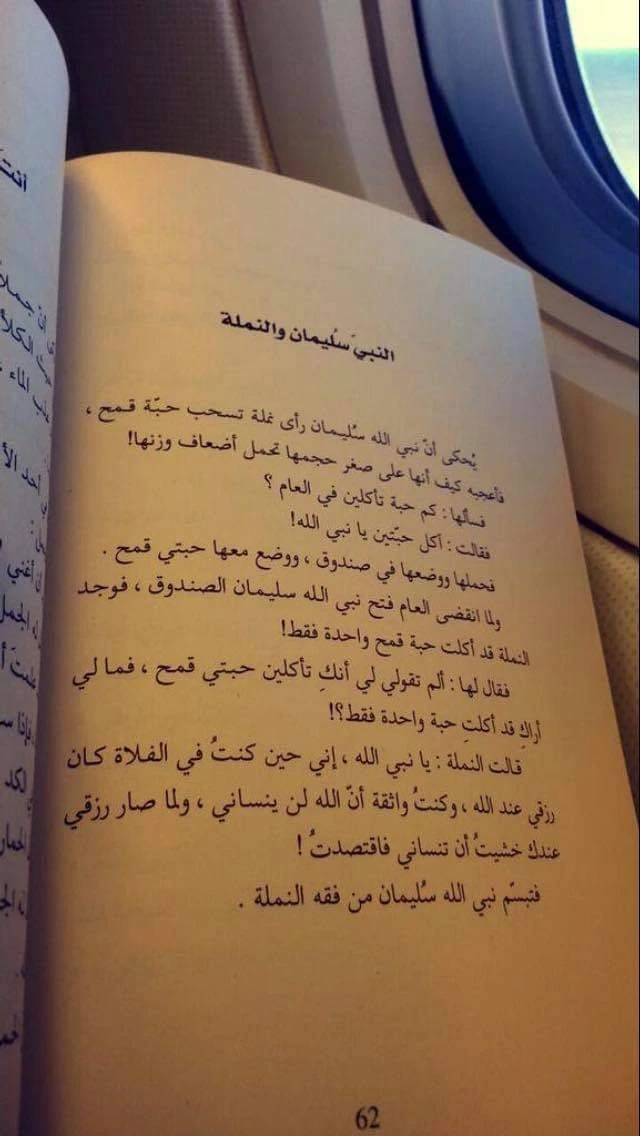 النبيّ سُليمان والنملة
يُحكى أنّ نبي الله سُليمان رأى نملة تسحب حبّة قمح ،
فأعجبه كيف أنها على صغر حجمها تحمل أضعاف وزنها!
فسألها : كم حبة تأكلين في العام ؟
فقالت : آكل حبّتين يا نبي الله!
فحملها ووضعها في صندوق ، ووضع معها حبتي قمح .
ولما انقضى العام فتح نبي الله سليمان الصندوق ، فوجد
النملة قد أكلت حبة قمح واحدة فقط!
فقال لها : ألم تقولي لي أنكِ تأكلين حبتي قمح ، فما لي
أراكِ قد أكلتِ حبة واحدة فقط؟!
قالت النملة : يا نبي الله ، إني حين كنتُ في الفلاة كان
رزقي عند الله ، وكنتُ واثقة أنّ الله لن ينساني ، ولما صار رزقي
عندك خشيتُ أن تنساني فاقتصدتُ !
فتبسّم نبي الله سُليمان من فقه النملة .
62